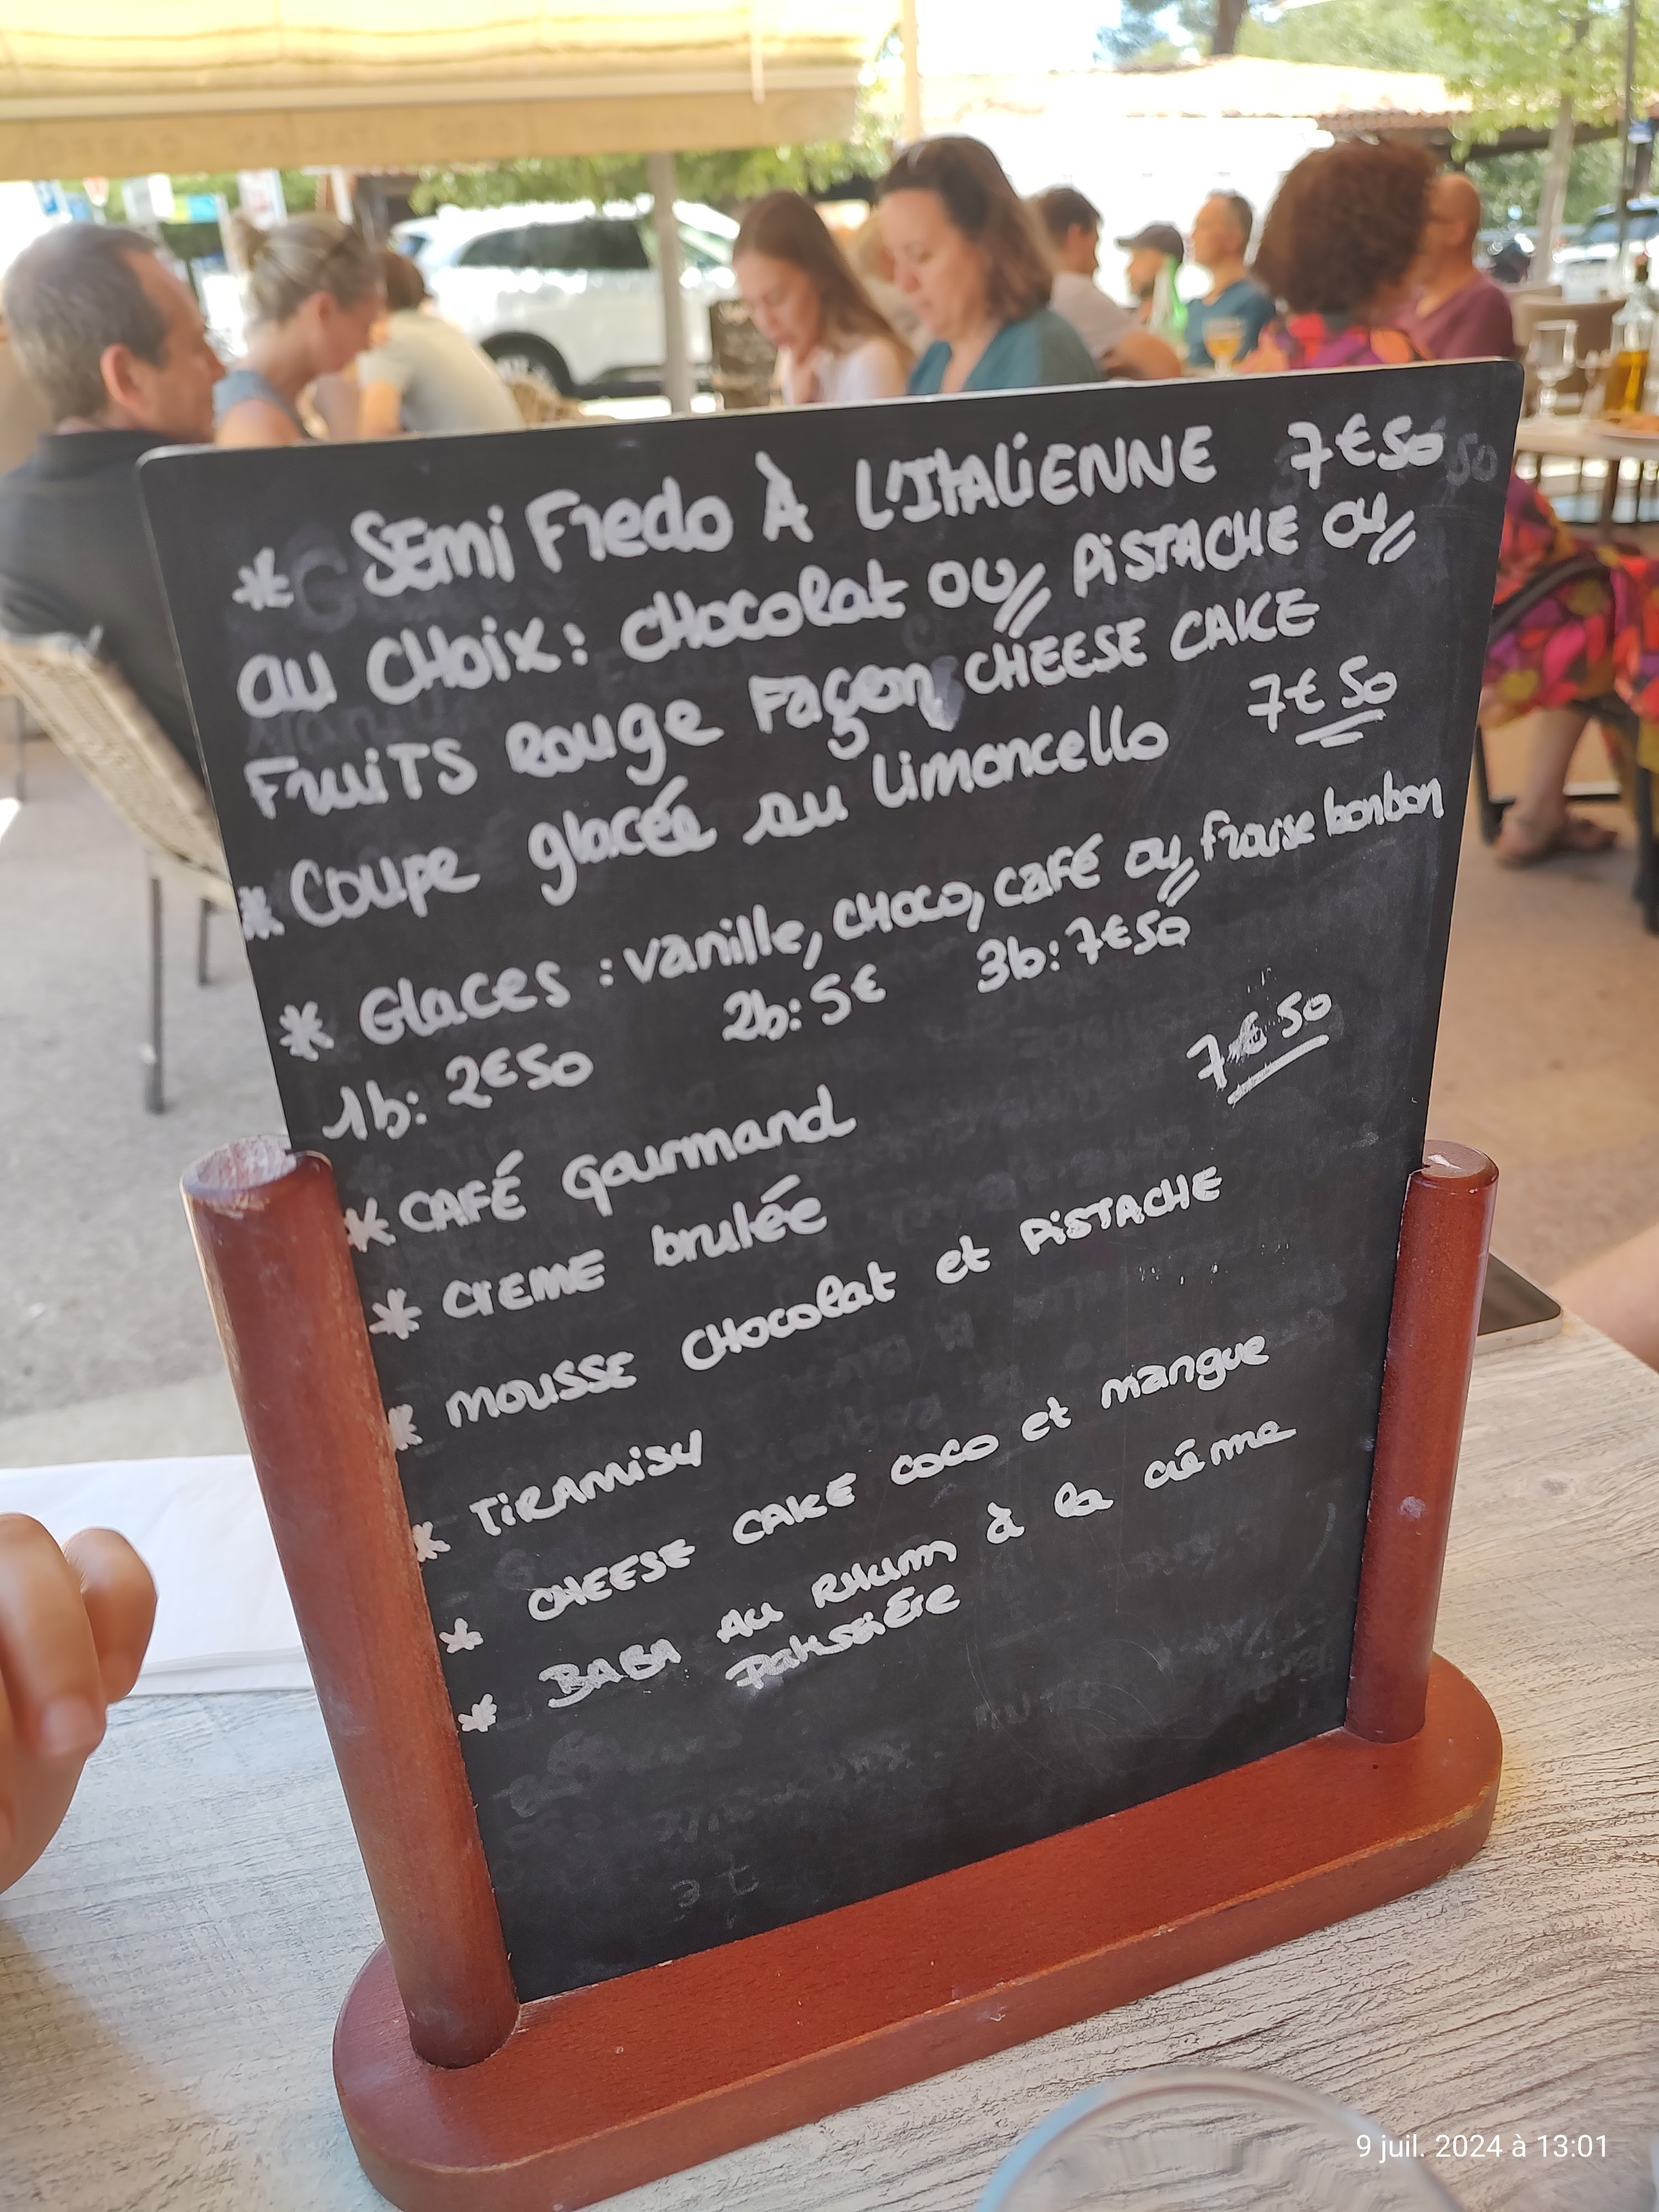 * SEMI FREDO À L'ITALIENNE 7€50
AU CHOIX: CHOCOLAT OU PISTACHE OU
FRUITS ROUGE FAÇON CHEESE CAKE
* COUPE glacée au LIMONCELLO 7€50
* Glaces : vanille, CHOCO, CAFÉ OU fraise bonbon
1b: 2€50 2b: 5€ 3b: 7€50
* CAFÉ Gourmand 7€50
* CREME brulée
* MOUSSE CHOCOLAT et PISTACHE
* TIRAMISU
* CHEESE CAKE COCO et mangue
* BABA AU RHUM à la crême
patissière
9 juil. 2024 à 13:01